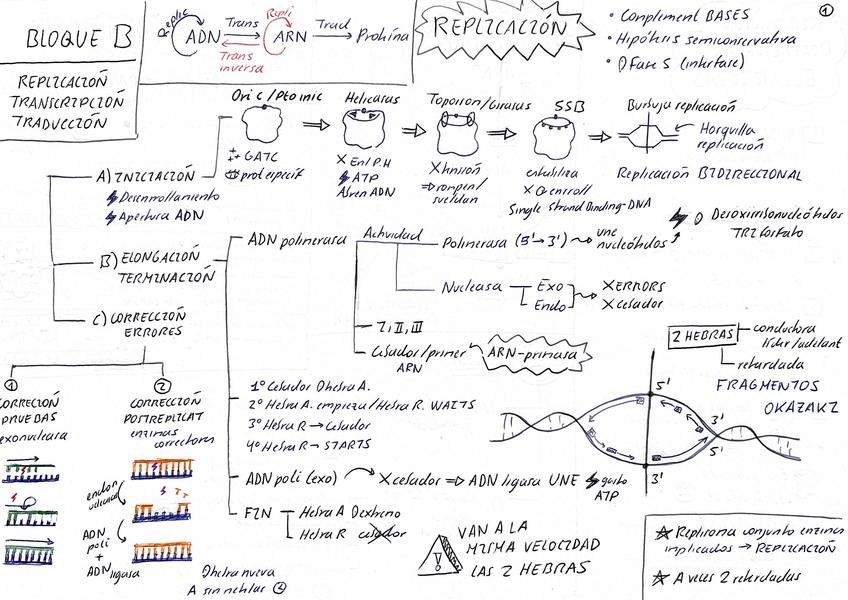 BLOQUE B
REPLICACIÓN
TRANSCRIPCIÓN
TRADUCCIÓN
Replic
ADN
Trans
Trans
inversa
Repli
ARN
Trad
Proteína
REPLICACIÓN
• Complement BASES
• Hipótesis semiconservativa
• Fase S (interfase)
1
Ori C / Ptoinic
GATC
prot especif
Helicasas
X En/P.H
ATP
Abren ADN
Topoisom/Girasas
X tensión
⇒ rompen/
sueldan
SSB
estabiliza
X enroll
Single Strand Binding-DNA
Burbuja replicación
Horquilla
replicación
Replicación BIDIRECCIONAL
A) INICIACIÓN
Desenrollamiento
Apertura ADN
B) ELONGACIÓN
TERMINACIÓN
C) CORRECCIÓN
ERRORES
ADN polimerasa
Actividad
Polimerasa (5'→3')
une
nucleótidos
Desoxirribonucleótidos
TRIfosfato
Nucleasa
Exo
Endo
X ERRORS
X cebador
I, II, III
Cebador/primer
ARN
ARN-primasa
1º Cebador Dhebra A.
2º Hebra A. empieza/Hebra R. WAITS
3º Hebra R → Cebador
4º Hebra R → STARTS
ADN poli (exo)
X cebador ⇒ ADN ligasa UNE
gasto
ATP
FIN
Hebra A Dextremo
Hebra R cebador
2 HEBRAS
conductora
líder/adelant
retardada
FRAGMENTOS
OKAZAKI
5'
3'
5'
3'
1
CORRECCIÓN
PRUEBAS
exonucleasa
2
CORRECCIÓN
POSTREPLICAT
enzimas
correctores
endon
ucleasa
ADN
poli
+
ADN ligasa
Dhebra nueva
A sin metilas
!
VAN A LA
MISMA VELOCIDAD
LAS 2 HEBRAS
Replisoma conjunto enzimas
implicados → REPLICACIÓN
A veces 2 retardadas